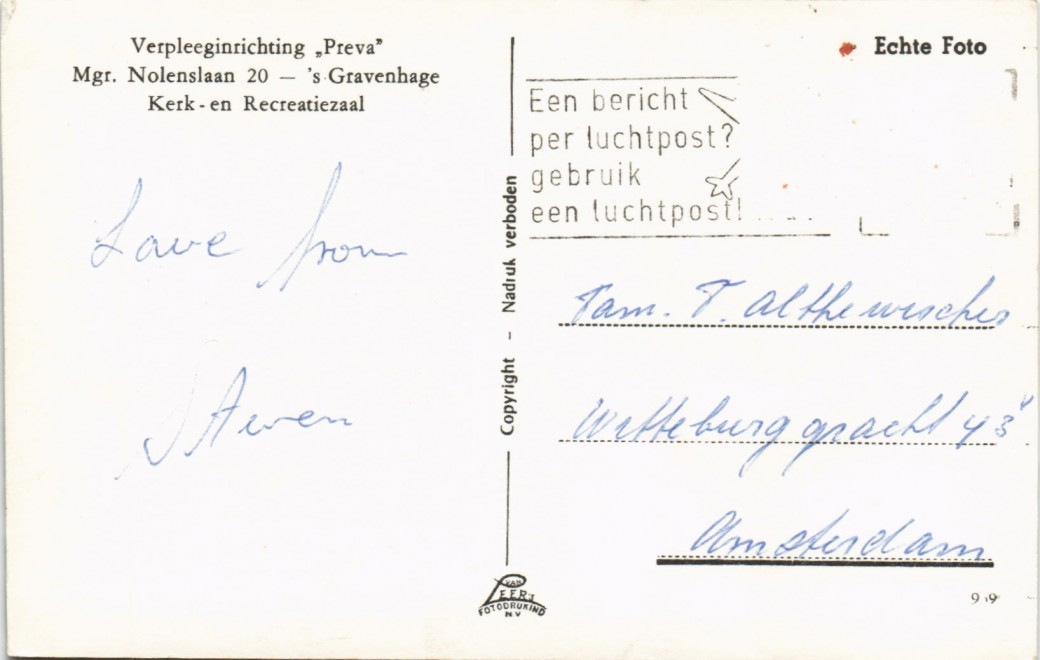 Verpleeginrichting „Preva”
Mgr. Nolenslaan 20 — 's-Gravenhage
Kerk- en Recreatiezaal
Love from
Steven
Copyright - Nadruk verboden
VAN
LEER's
FOTODRUKIND
N.V
Echte Foto
Een bericht
per luchtpost?
gebruik
een luchtpost!
Fam. T. Althewischer
Wittenburg gracht 43
Amsterdam